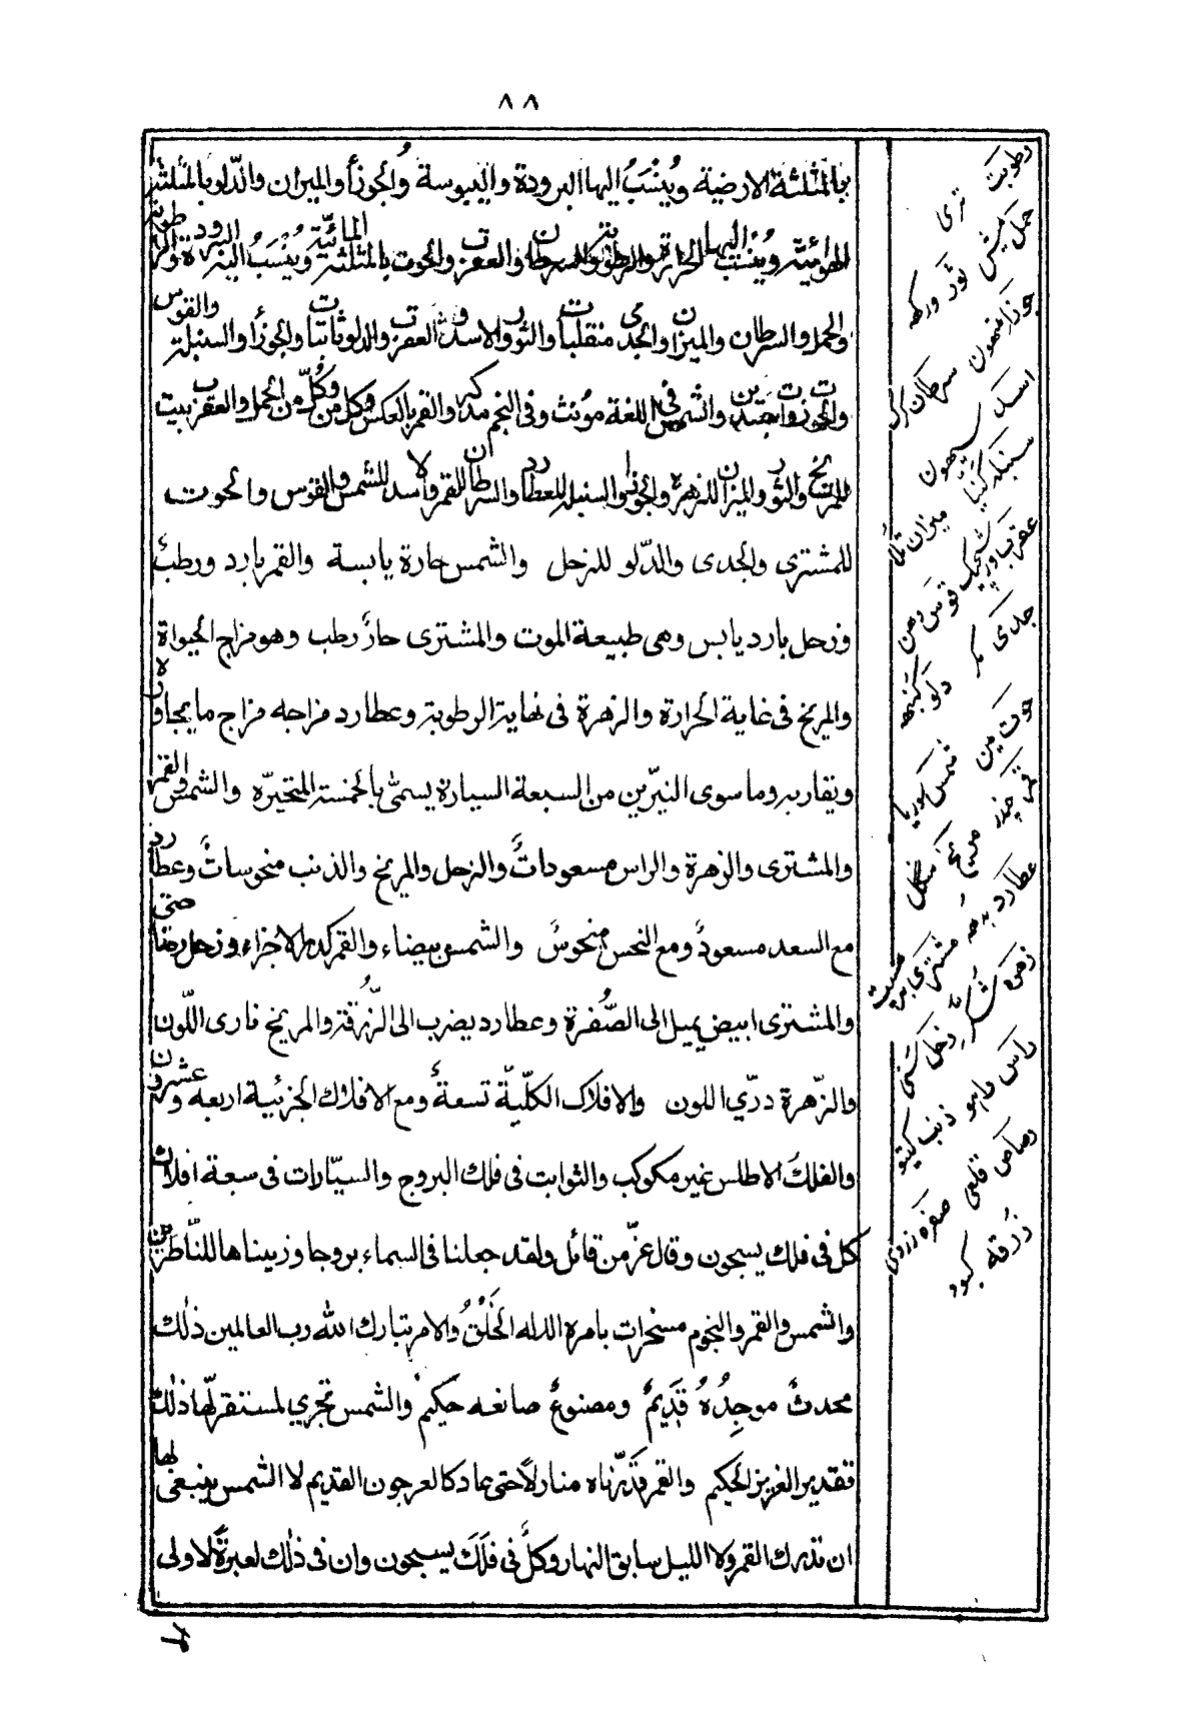 ٨٨
بالمثلثة الارضية ويُنْسَبُ اليها البرودة واليبوسة والجوزأ والميزان والدّلو بالمثلثة
الهوائيّة ويُنْسَبُ اليها الحرارة والرطوبة والسرطان والعقرب والحوت بالمثلثة المائيّة ويُنْسَبُ اليه البرودة والرطوبة
والحمل والسرطان والميزان والجدى منقلبات والثور والاسد والعقرب والدلو ثابتات والجوزأ والسنبلة والقوس
والحوت ذوات جسدين والشمس فى اللغة مؤنث وفى النجم مذكر والقمر بالعكس وكل من وكُلٌّ من الحمل والعقرب بيت
للمريخ والثور والميزان للزهرة والجوزا والسنبلة للعطارد والسرطان للقمر والاسد للشمس والقوس والحوت
للمشترى والجدى والدّلو للزحل والشمس حارة يابسة والقمر بارد ورطبٌ
وزحل بارد يابس وهى طبيعة الموت والمشترى حارٌ رطب وهو مزاج الحيواة
والمريخ فى غاية الحرارة والزهرة فى نهاية الرطوبة وعطارد مزاجه مزاج ما يجاوره
ويقاربه وما سوى النيّرين من السبعة السيارة يسمّى بالخمسة المتحيّره والشمس والقمر
والمشترى والزهرة والراس مسعوداتٌ والزحل والمريخ والذنب منحوساتٌ وعطارد
مع السعد مسعودٌ ومع النحس منحوسٌ والشمس بيضاء والقمر كدر الاجزاء وزحل رصاصى
والمشترى ابيض يميل الى الصُّفرة وعطارد يضرب الى الزُّرقة والمريخ نارى اللّون
والزّهرة درّي اللون والافلاك الكلّيّة تسعةٌ ومع الافلاك الجزئية اربعه وعشرون
والفلك الاطلس غير مكوكب والثوابت فى فلك البروج والسيّارات فى سبعة افلاك
كل فى فلك يسبحون وقال عزّ من قائل ولقد جعلنا فى السماء بروجا وزيناها للنّاظرين
والشمس والقمر والنجوم مسخرات بامره الا له الخَلْقُ والامر تبارك الله رب العالمين ذلك
محدثٌ موجِدُهُ قَدِيمٌ ومصنوعٌ صانعه حكيم والشمس تجري لمستقر لّها ذلك
تقدير العزيز الحكيم والقمر قدّرناه منازلاً حتى عاد كالعرجون القديم لا الشمس ينبغى لها
ان تدرك القمر ولا الليل سابق النهار وكلٌّ فى فَلَكَ يسبحون وان فى ذلك لعبرةً لاولى
رطوبت ترى
حمل ميش ثور ورکھ
جوزا متھون سرطان کرک
اسد سنگھون
سنبله کنیا میزان تلا
عقرب ورچیک قوس دھن
جدی مکر دلو کنبھ
حوت مین شمس سوریا
قمر چندر مریخ منگل
عطارد بدھ مشتری برہسپت
زهره شکر زحل سنی
راس راہو ذنب کیتو
رصاص قلعی صفره زردی
زرقه کبود